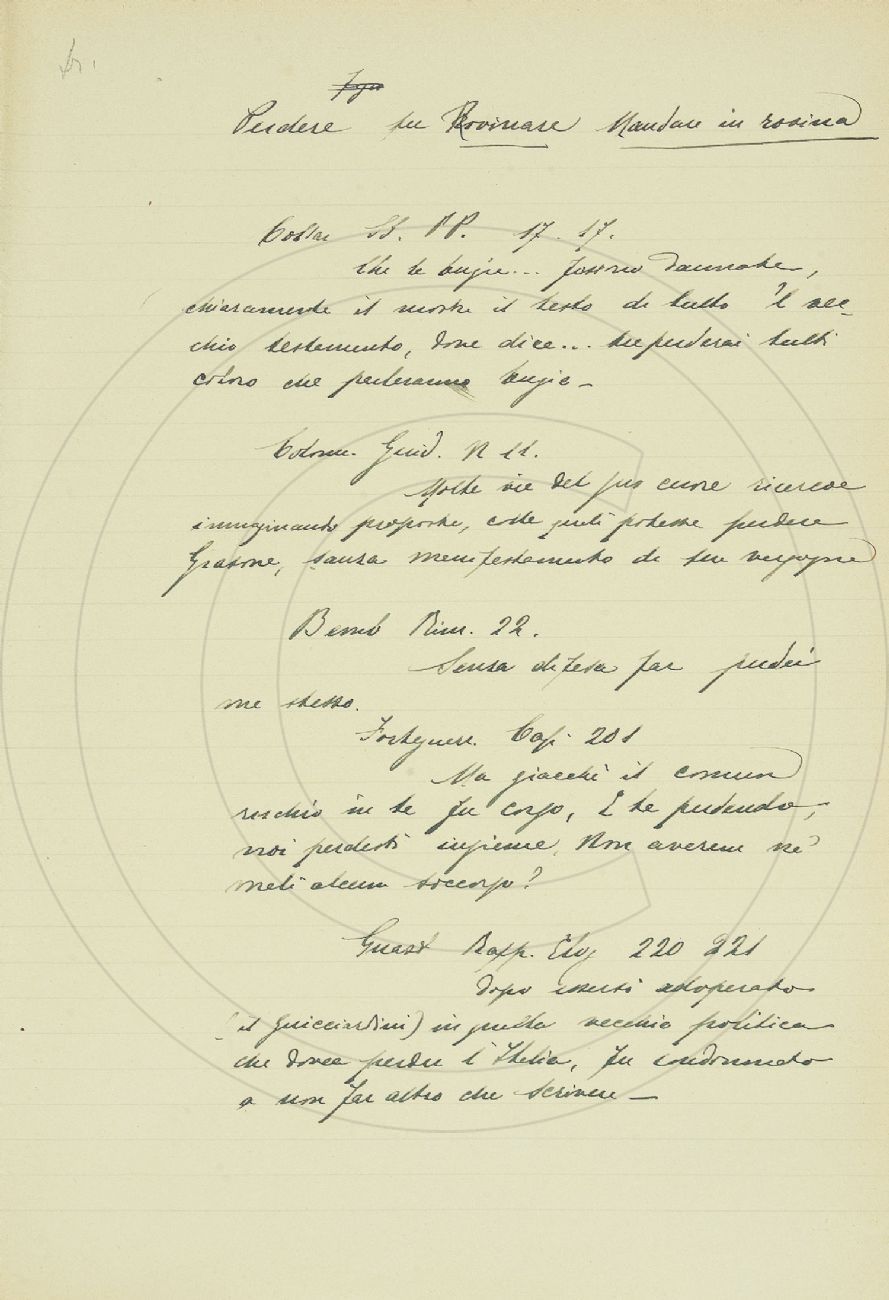 Perdere per Rovinare Mandare in rovina
Collaz. SS. PP. 17. 17.
Che le bugie... fossero dannate,
chiaramente il mostra il testo di tutto 'l vec-
chio testamento, dove dice... tu perderai tutti
coloro che parleranno bugie –
Colonn. Guid. N 11.
Molte vie del suo cuore ricercoe
immaginando proposte, colle quali potesse perdere
Giasone, sanza manifestamento di sua vergogna
Bemb Rim. 22.
Senza difesa far perdei
me stesso.
Forteguerr. Cap. 201
Ma giacchè il comun
rischio in te fu corso, E te perdendo,
noi perdesti insieme, Non averem ne'
mali alcun soccorso?
Guast Rapp. Elog 220 221
Dopo essersi adoperato
(il Guicciardini) in quella vecchia politica
che dovea perder l'Italia, fu condannato
a non far altro che scrivere –